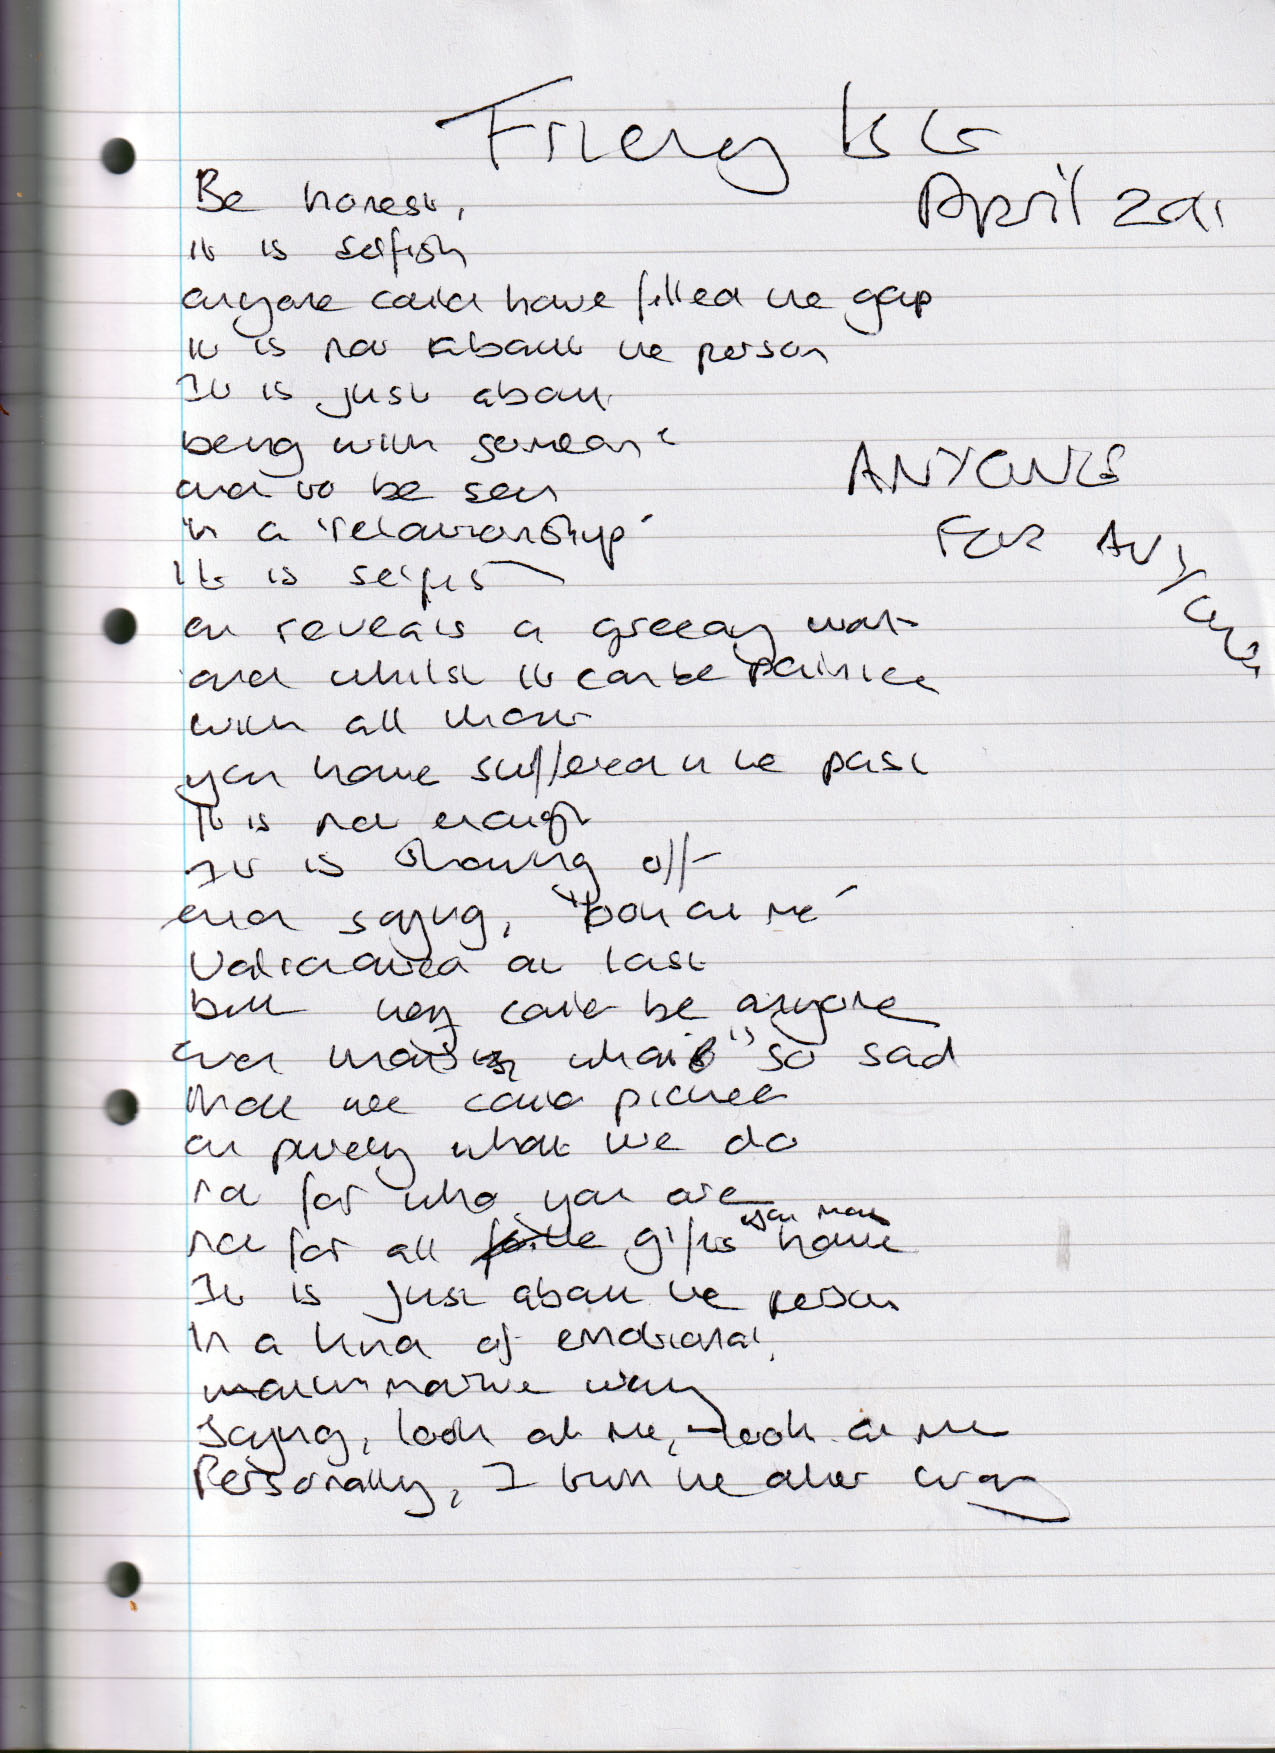 Friday 15
April 2011
Be honest,
it is selfish
anyone could have filled the gap
It is not about the person
It is just about
being with someone
and to be seen
in a 'relationship'
It is selfish
reveals a greedy want
and whilst it can be painted
with all that
you have suffered in the past
It is not enough
It is showing off
and saying, 'look at me'
Validated at last
but they could be anyone
and that is what is so sad
that we could
on purely what we do
not for who you are
not for all gifts you may have
It is just about the person
In a kind of emotional,
way
saying, look at me, look at me
Personally, I turn the other way
ANYONE
FOR ANYONE